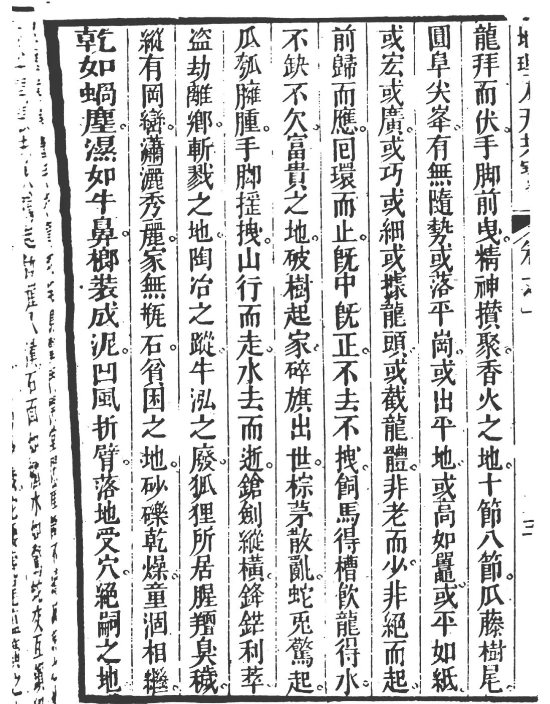 龍拜而伏手脚前曳精神攢聚香火之地十節八節瓜藤樹尾
圓阜尖峯有無隨勢或落平崗或出平地或高如罍或平如紙
或宏或廣或巧或細或據龍頭或截龍體非老而少非絕而起
前歸而應回環而止旣中旣正不去不拽飼馬得槽飮龍得水
不缺不欠富貴之地破樹起家碎旗出世棕茅散亂蛇兎驚起
瓜瓠臃腫手脚摇拽山行而走水去而逝鎗劍縱橫鋒鋩利萃
盜劫離鄕斬戮之地陶冶之蹤牛泓之廢狐狸所居腥羶臭穢
縱有岡巒瀟灑秀麗家無甁石貧困之地砂礫乾燥童涸相繼
乾如蝸塵濕如牛鼻榔裝成泥凹風折臂落地受穴絕嗣之地